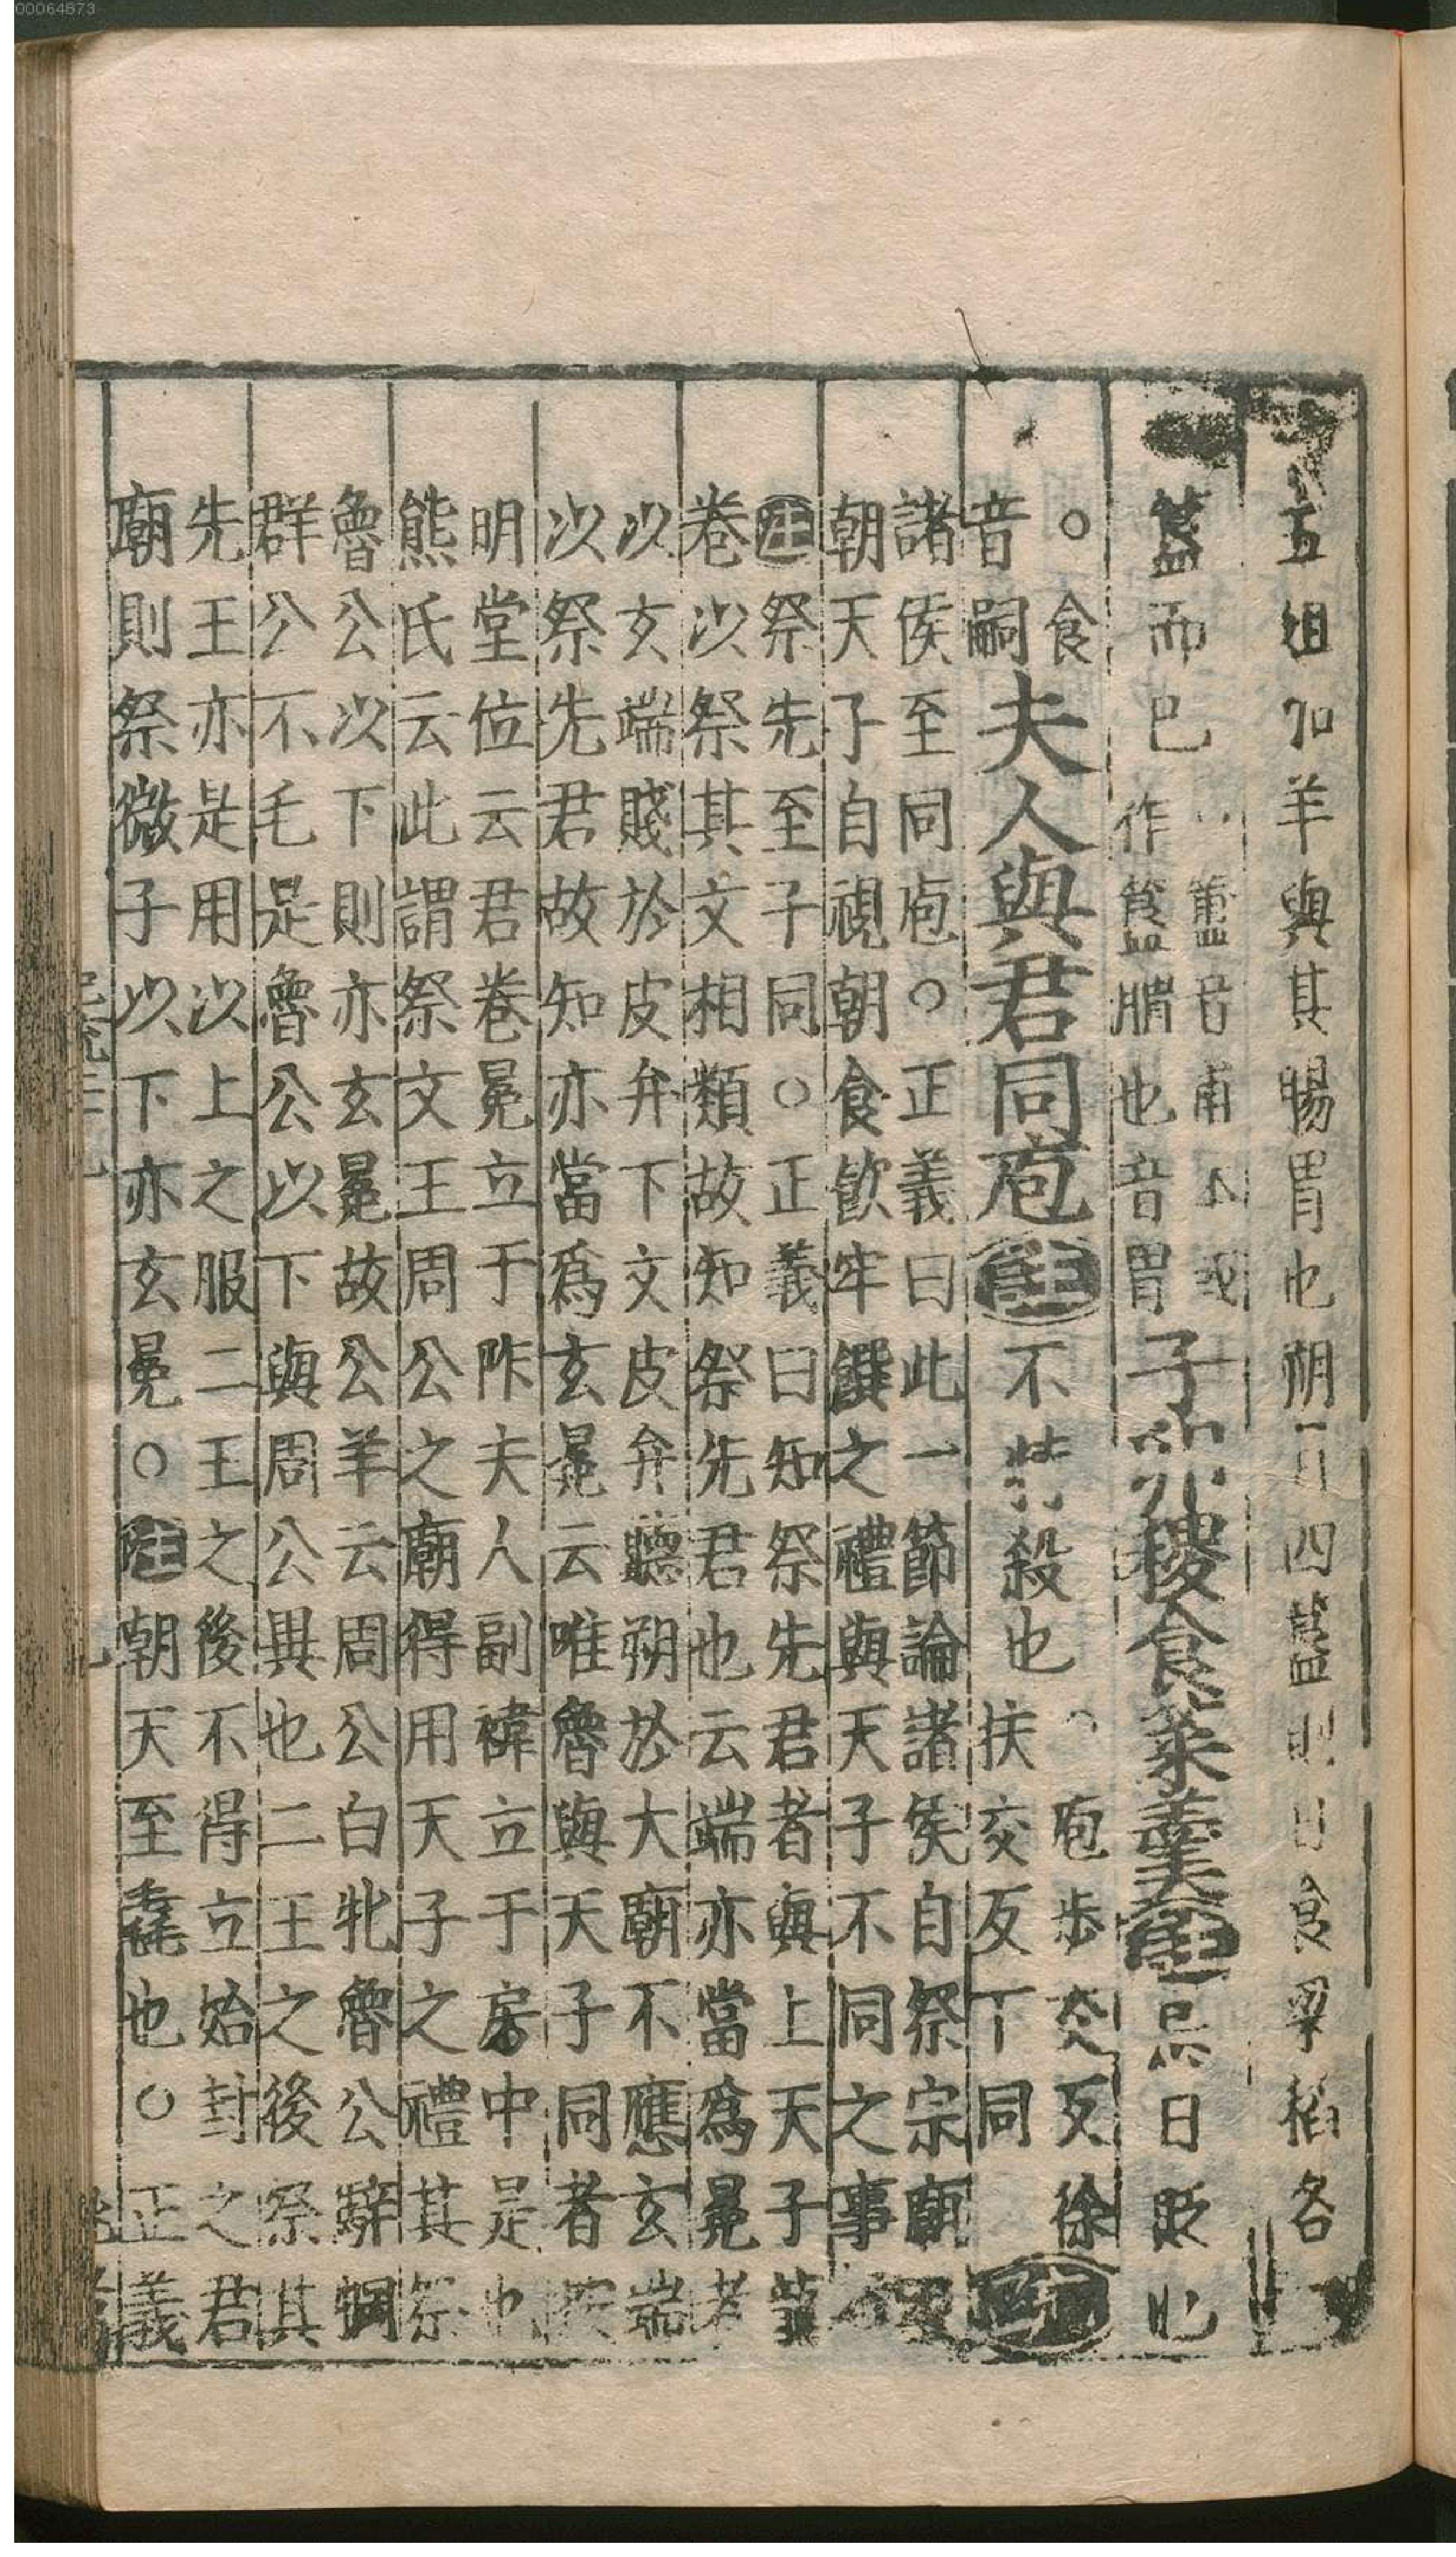 00064873
五俎加羊與其腸胃也朔月四簋則日食粱稻各一
簋而已
○簠音甫本或
作簋腸也音胃
子卯稷食菜羹
注
忌日貶也
○食
音嗣
夫人與君同庖
注
不特殺也
○庖步交反徐
扶交反下同
疏
諸侯至同庖○正義曰此一節論諸侯自祭宗廟
朝天子自視朝食飲牢饌之禮與天子不同之事
注祭先至子同○正義曰知祭先君者與上天子龍
卷以祭其文相類故知祭先君也云端亦當爲冕者
以玄端賤於皮弁下文皮弁聽朔於大廟不應玄端
以祭先君故知亦當爲玄冕云唯魯與天子同者案
明堂位云君卷冕立于阼夫人副褘立于房中是也
熊氏云此謂祭文王周公之廟得用天子之禮其祭
魯公以下則亦玄冕故公羊云周公白牡魯公騂犅
群公不毛是魯公以下與周公異也二王之後祭其
先王亦是用以上之服二王之後不得立始封之君
廟則祭微子以下亦玄冕○注朝天至毳也○正義